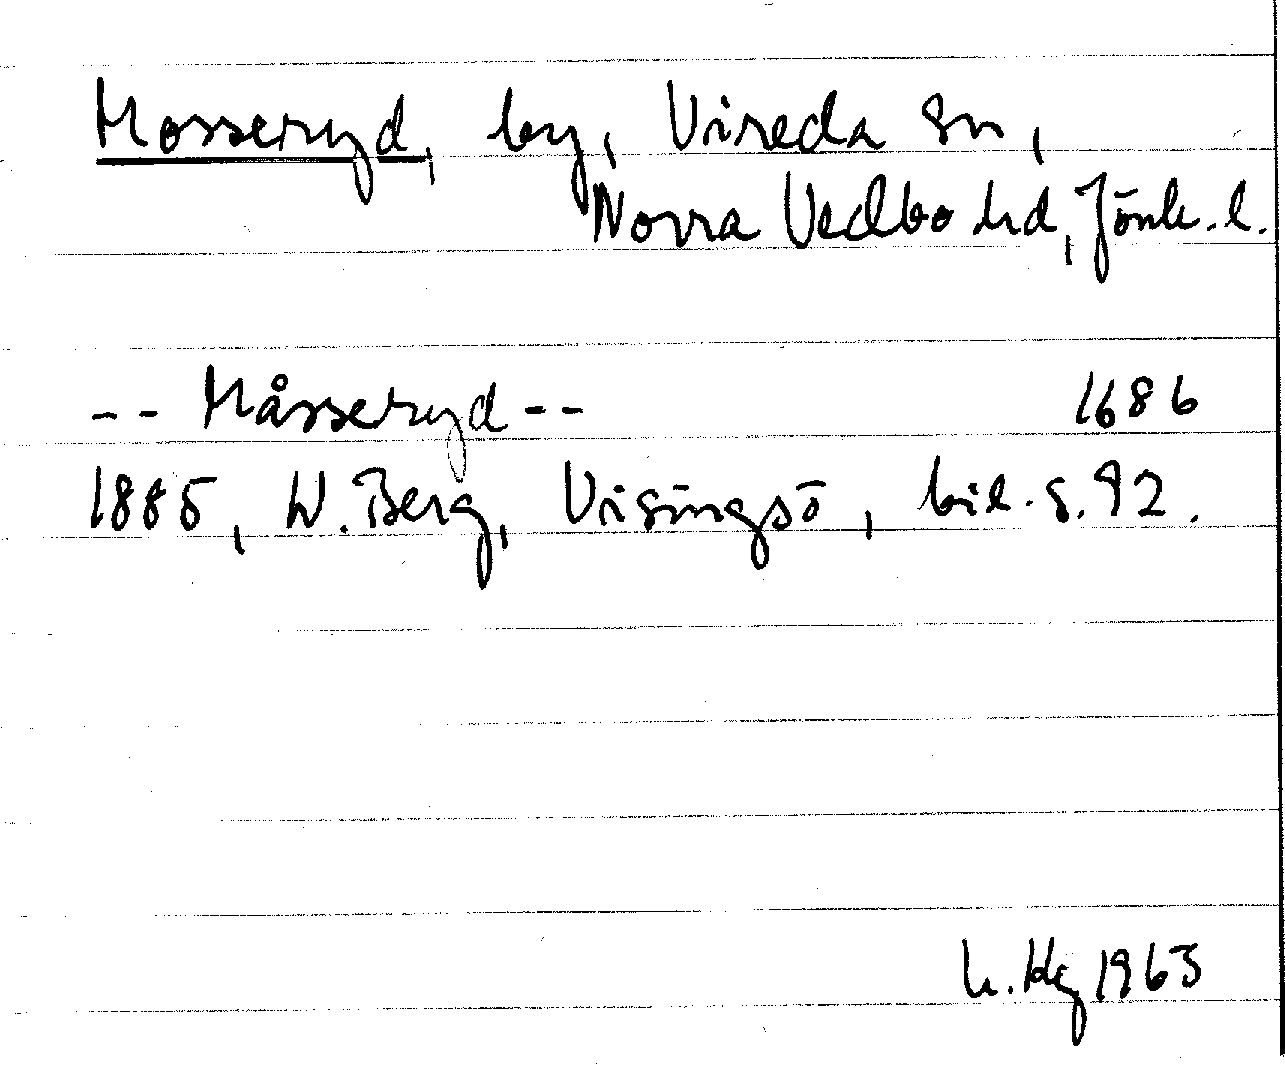 Mosseryd, by, Vireda sn,
Norra Vedbo hd, Jönk. l.
-- Måsseryd -- 1686
1885, W. Berg, Visingsö, bil. s. 92.
1963